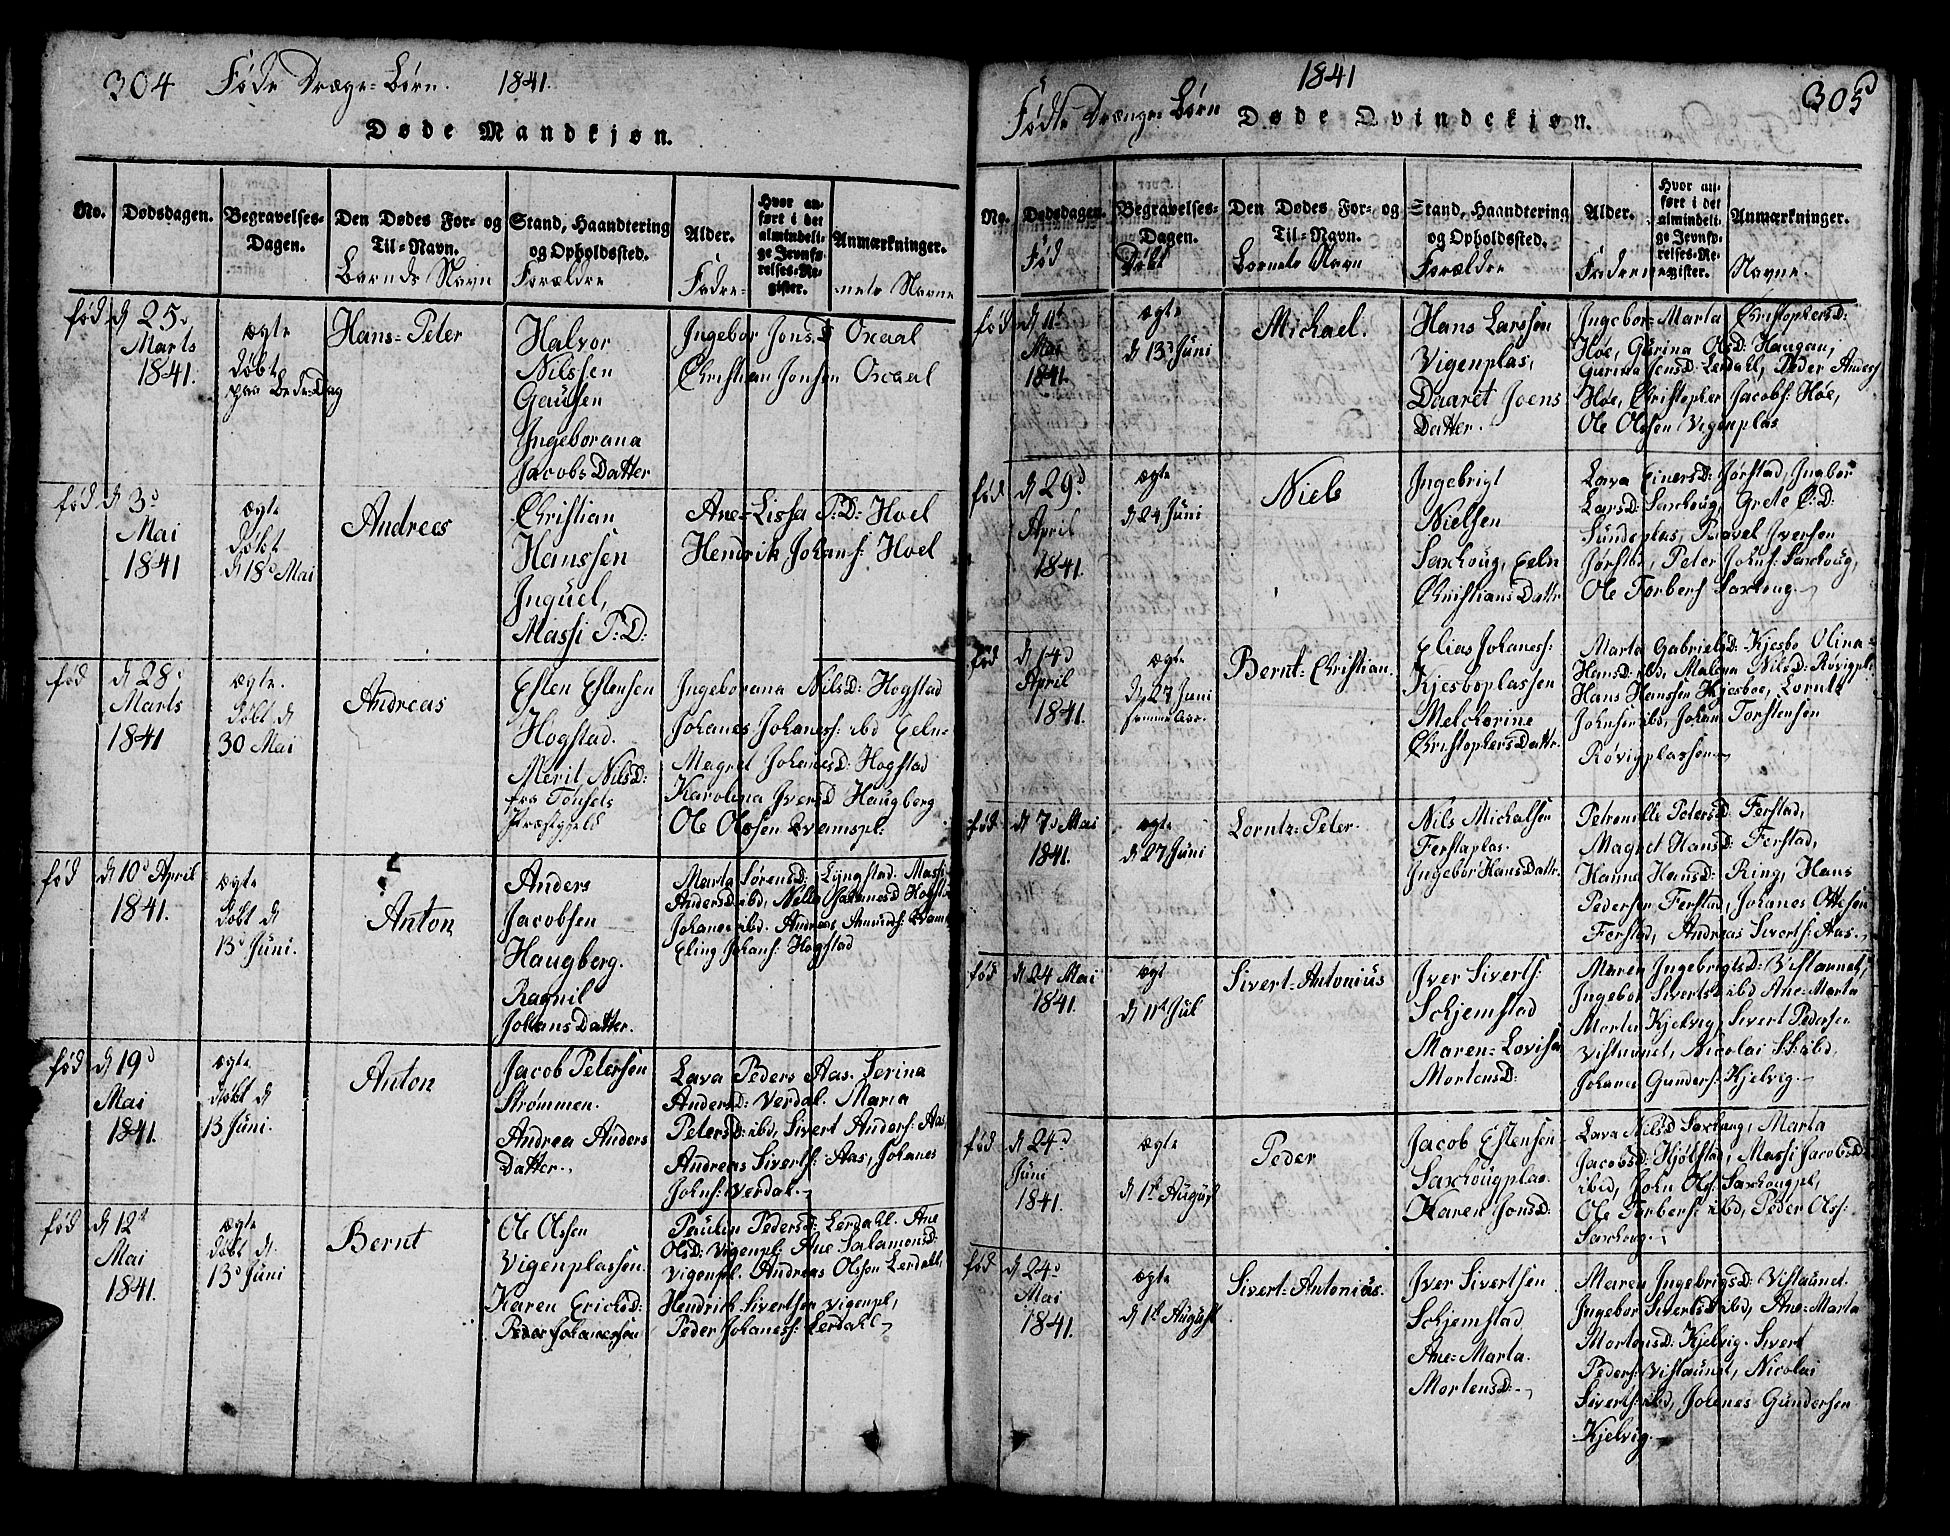 304 Føde Drænge-Børn. 1841.
Døde Mandkjøn.
No.
Dødsdagen.
Begravelses-
Dagen.
Den Dødes For- og
Til-Navn.
Barnds Navn
Stand, Haandtering
og Opholdssted.
Forældre
Alder.
Fadre-
Hvor an-
ført i det
almindeli-
ge Jevnfø-
relses-Re-
gister.
Anmærkninger.
nets Navne
fød d 25d
Marts
1841.
ægte
døbt
paa Bede-Dag
Hans-Peter
Halvor
Nilssen
Gausen
Ingeborana
Jacobs Datter
Ingebor Jons D Oxaal
Christian Jonsen Oxaal
fød d 3d
Mai
1841
ægte
døbt
d 18d Mai
Andreas
Christian
Hanssen
Inguel,
Massi P:D:
Ane-Lissa P:D: Hoel
Hendrik Johans: Hoel
fød d 28d
Marts
1841
ægte.
døbt d
30 Mai
Andreas
Esten Estensen
Hogstad.
Merit NilsD:
fra Tønsets
Præstgjeld
Ingeborana NilsD: Hogstad
Johanes Johaness: ibd Eeln-
Magret JohanesD: Hogstad
Karolina IversD Haugberg
Ole Olssen Qvamspl:
fød d 10d April
1841.
ægte
døbt d
13d Juni.
Anton
Anders
Jacobsen
Haugberg.
Ragnil
Johans Datter.
Marta SørensD: Lyngstad. Massi
AndersD ibd, Nella JohanesD Hogstad
Johanes ibd. Andreas Amunds: Qvam
Eling Johans: Hogstad
fød d 19d
Mai
1841.
ægte
døbt d
13 Juni.
Anton
Jacob Petersen
Strømmen.
Andrea Anders
Datter.
Lava Peders Aas. Serina
AndersD: Verdal. Maria
PetersD: ibd, Sivert Anders: Aas,
Andreas Siverts: Aas, Johanes
Johns: Verdal.
fød d 12d
Mai
1841.
ægte
døbt d.
13d Juni
Bernt
Ole Olsen
Vigenplassen.
Karen ErichsD:
Peder Johanessen
Paulen PedersD: Lerdahl. Ane
OlsD: Vigenpl: Ane SalamonsD:
Vigenpl. Andreas Olssen Lerdahl,
Hendrik Sivertsen Vigenpl,
Peder Johaness: Lerdahl
1841 305
Fødte Drænge Børn Døde Qvindekjøn.
No.
Dødsdagen.
Fød
Begravelses-
Dagen.
Døbt
Den Dødes For- og
Til-Navn.
Barnets Navn
Stand, Haandtering
og Opholdssted.
Forældre
Alder.
Fadrene
Hvor an-
ført i det
almindeli-
ge Jevnfø-
relses-Re-
gister.
Anmærkninger.
Navne.
fød d 11t
Mai
1841.
ægte
d 13d Juni
Michael.
Hans Larssen
Vigenplas,
Daaret Joens
Datter.
Ingebor-Marta ChristophersD:
Høe, Gurina OlsD: Haugan,
Gurina JensD: Lerdahl, Peder Anders
Høe, Christopher Jacobs: Høe,
Ole Olssen Vigenplas
fød d 29d
April
1841.
ægte
d 24 Juni
Niels
Ingebrigt
Nielsen
Saxhoug, Eeln
Christians Dattr
Lava EinersD: Jørstad, Ingbor
LarsD: Saxhoug, Grete O:D:
Sundeplas, Paavel Iversen
Jørstad, Peter Johns: Saxhoug,
Ole Torbers Saxhoug.
fød d 14d
April
1841.
ægte
d 27 Juni
Bernt-Christian.
Elias Johaness:
Kjesboplassen
Melchorine
Christophers Dattr.
Marta GabrielsD: Kjesbo Olina-
HansD: ibd, Malena NilsD: Røvigpl.
Hans Hanssen Kjesboe, Lorntz
Johnsen ibd, Johan Torstensen
Røvigplassen
fød d 7d Mai
1841.
ægte
d 27 Juni
Lorntz-Peter.
Nils Michalsen
Ferstaplas.
Ingebor Hans Dattr.
Petronille PetersD: Ferstad,
Magret HansD: Ferstad,
Hanna HansD: Ring, Hans
Pedersen, Ferstad, Johanes Ottesen
Ferstad, Andreas Siverts: Aas.
fød d 24 Mai
1841.
ægt
d 11t Jul
Sivert-Antonius
Iver Siverts:
Schjemstad
Maren-Lovisa
MortensD:
Maren IngebrigtsD: Vistaunet,
Ingebor SivertsD ibd Ane-Marta
Morten Kjelvig, Sivert Pedersen
Vistaunet, Nicolai S:S: ibd.
Johanes Gunders: Kjelvig.
fød d 24d
Juni
1841.
ægte
d 1t August
Peder
Jacob Estensen
Saxhougplas.
Karen JonsD:
Lava NilsD Saxhaug, Marta
JacobsD: Hjølstad, Massi JacobsD
ibid, John Ols: Saxhougpl,
Ole Torbers: ibd, Peder Olss:
Saxhoug.
fød d 24d
Mai
1841.
ægte
d 1t August
Sivert-Antonius.
Iver Sivertsen
Schjemstad,
Ane-Marta.
MortensD:
Maren IngebrigsD: Vistaunet.
Ingebor SivertsD ibd, Ane-Marta
MortensD: Kjelvig. Sivert
Peders: Vistaunet, Nicolai
Siverts: ibd, Johanes Gundersen
Kjelvig.